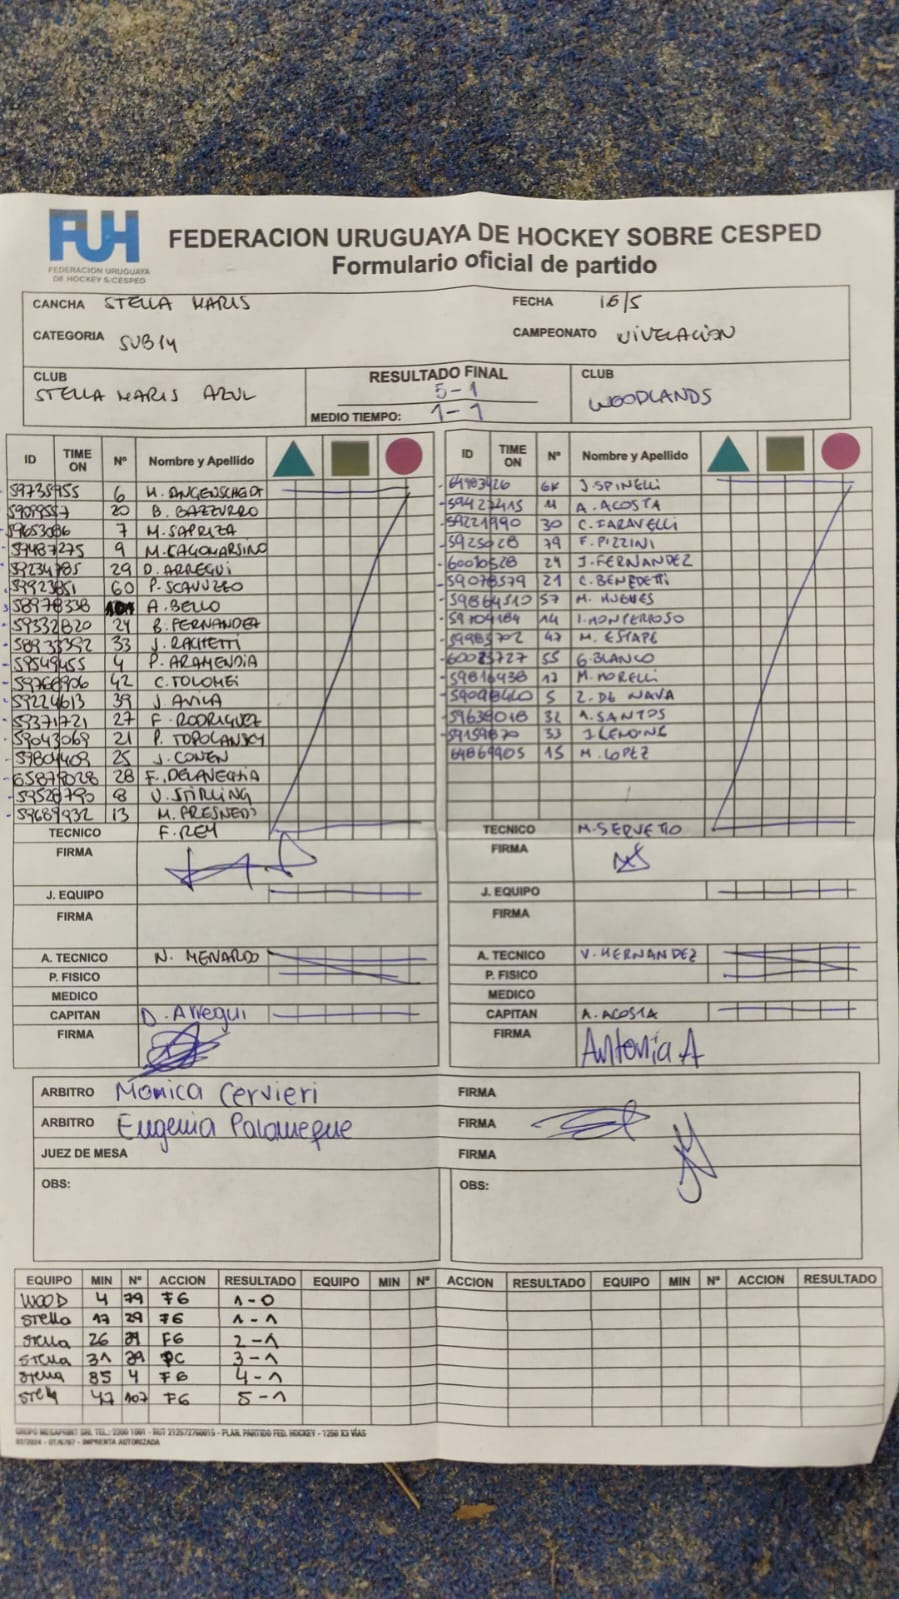 FUH
FEDERACION URUGUAYA
DE HOCKEY S/CESPED
FEDERACION URUGUAYA DE HOCKEY SOBRE CESPED
Formulario oficial de partido
CANCHA STELLA MARIS FECHA 16/5
CATEGORIA SUB14 CAMPEONATO NIVELACION
CLUB RESULTADO FINAL CLUB
STELLA MARIS AZUL 5-1 WOODLANDS
MEDIO TIEMPO: 1-1
ID TIME ON Nº Nombre y Apellido
59735955 6 M.
20 B. BAZZURRO
59653086 7 M. SAPRIZA
59487275 9 M. CAGOMARSINO
59234785 29 D. ARREGUI
59923851 60 P. SCAVUZZO
58978338 A. BELLO
59332820 24 B. FERNANDEZ
58933392 33 J. RACHETTI
59549455 4 P. ARAMENDIA
59766906 42 C. TOLOMEI
59224613 39 J. AVILA
59371721 27 F. RODRIGUEZ
59043069 21 P. TOPOLANSKY
57804409 25 J. CONEN
65879028 28 F. DELAVECHIA
59528790 8 V. STIRLING
59689932 13 M. FRESNEDO
TECNICO F. REY
FIRMA
J. EQUIPO
FIRMA
A. TECNICO N. MENARDO
P. FISICO
MEDICO
CAPITAN D. Arregui
FIRMA
ID TIME ON Nº Nombre y Apellido
64983426 64 J. SPINELLI
59427415 11 A. ACOSTA
59221990 30 C. FARAVELLI
5925028 79 F. PIZZINI
60010528 29 J. FERNANDEZ
59078579 21 C. BENEDETTI
59864510 57 M. HUGHES
59104184 14 I. MONTERROSO
59985702 47 M. ESTAPE
60023727 55 G. BLANCO
59816438 17 M. MORELLI
59098440 5 Z. DE NAVA
59638018 32 A. SANTOS
59159870 33 J. LEMOINE
64869905 15 M. LOPEZ
TECNICO M. SERVETTO
FIRMA
J. EQUIPO
FIRMA
A. TECNICO V. HERNANDEZ
P. FISICO
MEDICO
CAPITAN A. ACOSTA
FIRMA Antonia A
ARBITRO Monica Cervieri FIRMA
ARBITRO Eugenia Palomeque FIRMA
JUEZ DE MESA FIRMA
OBS: OBS:
EQUIPO MIN Nº ACCION RESULTADO EQUIPO MIN Nº ACCION RESULTADO EQUIPO MIN Nº ACCION RESULTADO
WOOD 4 79 FG 1-0
Stella 17 29 FG 1-1
Stella 26 FG 2-1
Stella 31 PC 3-1
Stella 4 FG 4-1
Stella 47 107 FG 5-1
GRUPO MEGAPRINT SRL TEL.: 2200 1001 - RUT 212572760015 - PLAN. PARTIDO FED. HOCKEY - 1250 X3 VÍAS
IMPRENTA AUTORIZADA